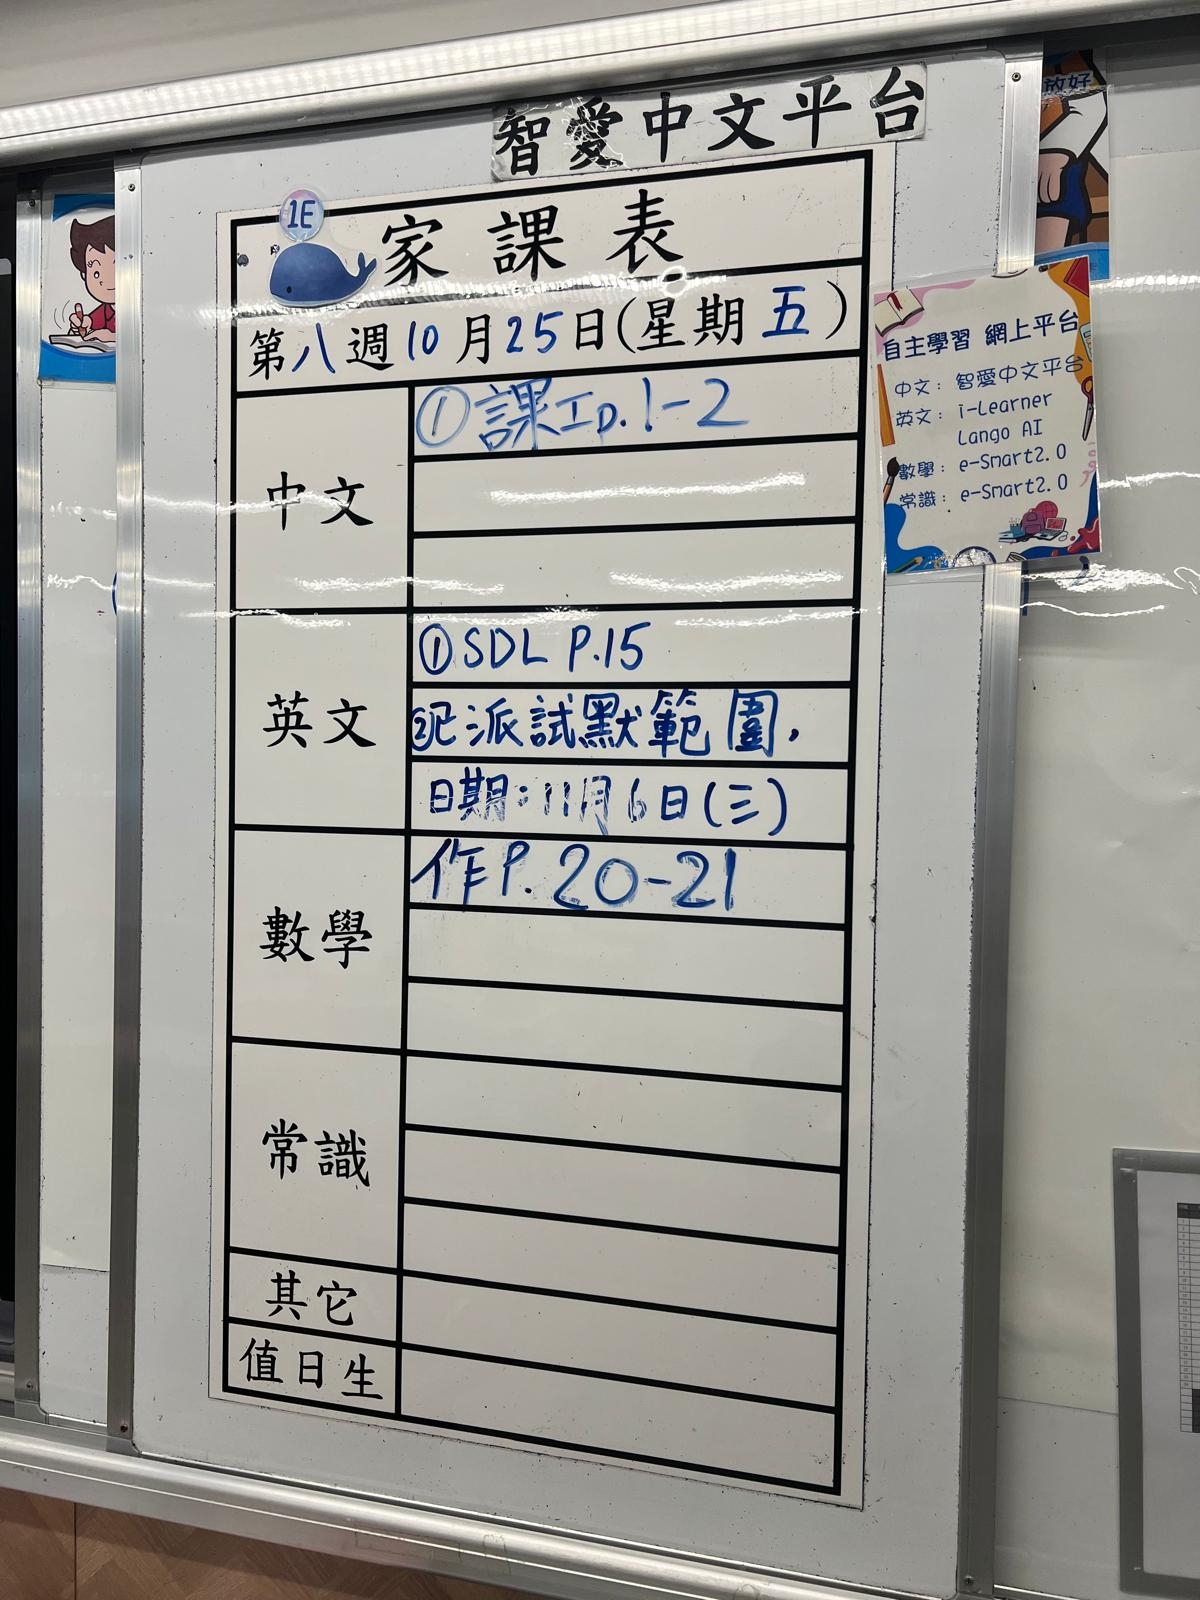 智愛中文平台
1E
家課表
第八週10月25日(星期五)
中文
①課工p.1-2
英文
①SDL P.15
②已派試默範圍,
日期:11月6日(三)
數學
作P.20-21
常識
其它
值日生
放好
自主學習 網上平台
中文：智愛中文平台
英文：i-Learner
Lango AI
數學：e-Smart2.0
常識：e-Smart2.0